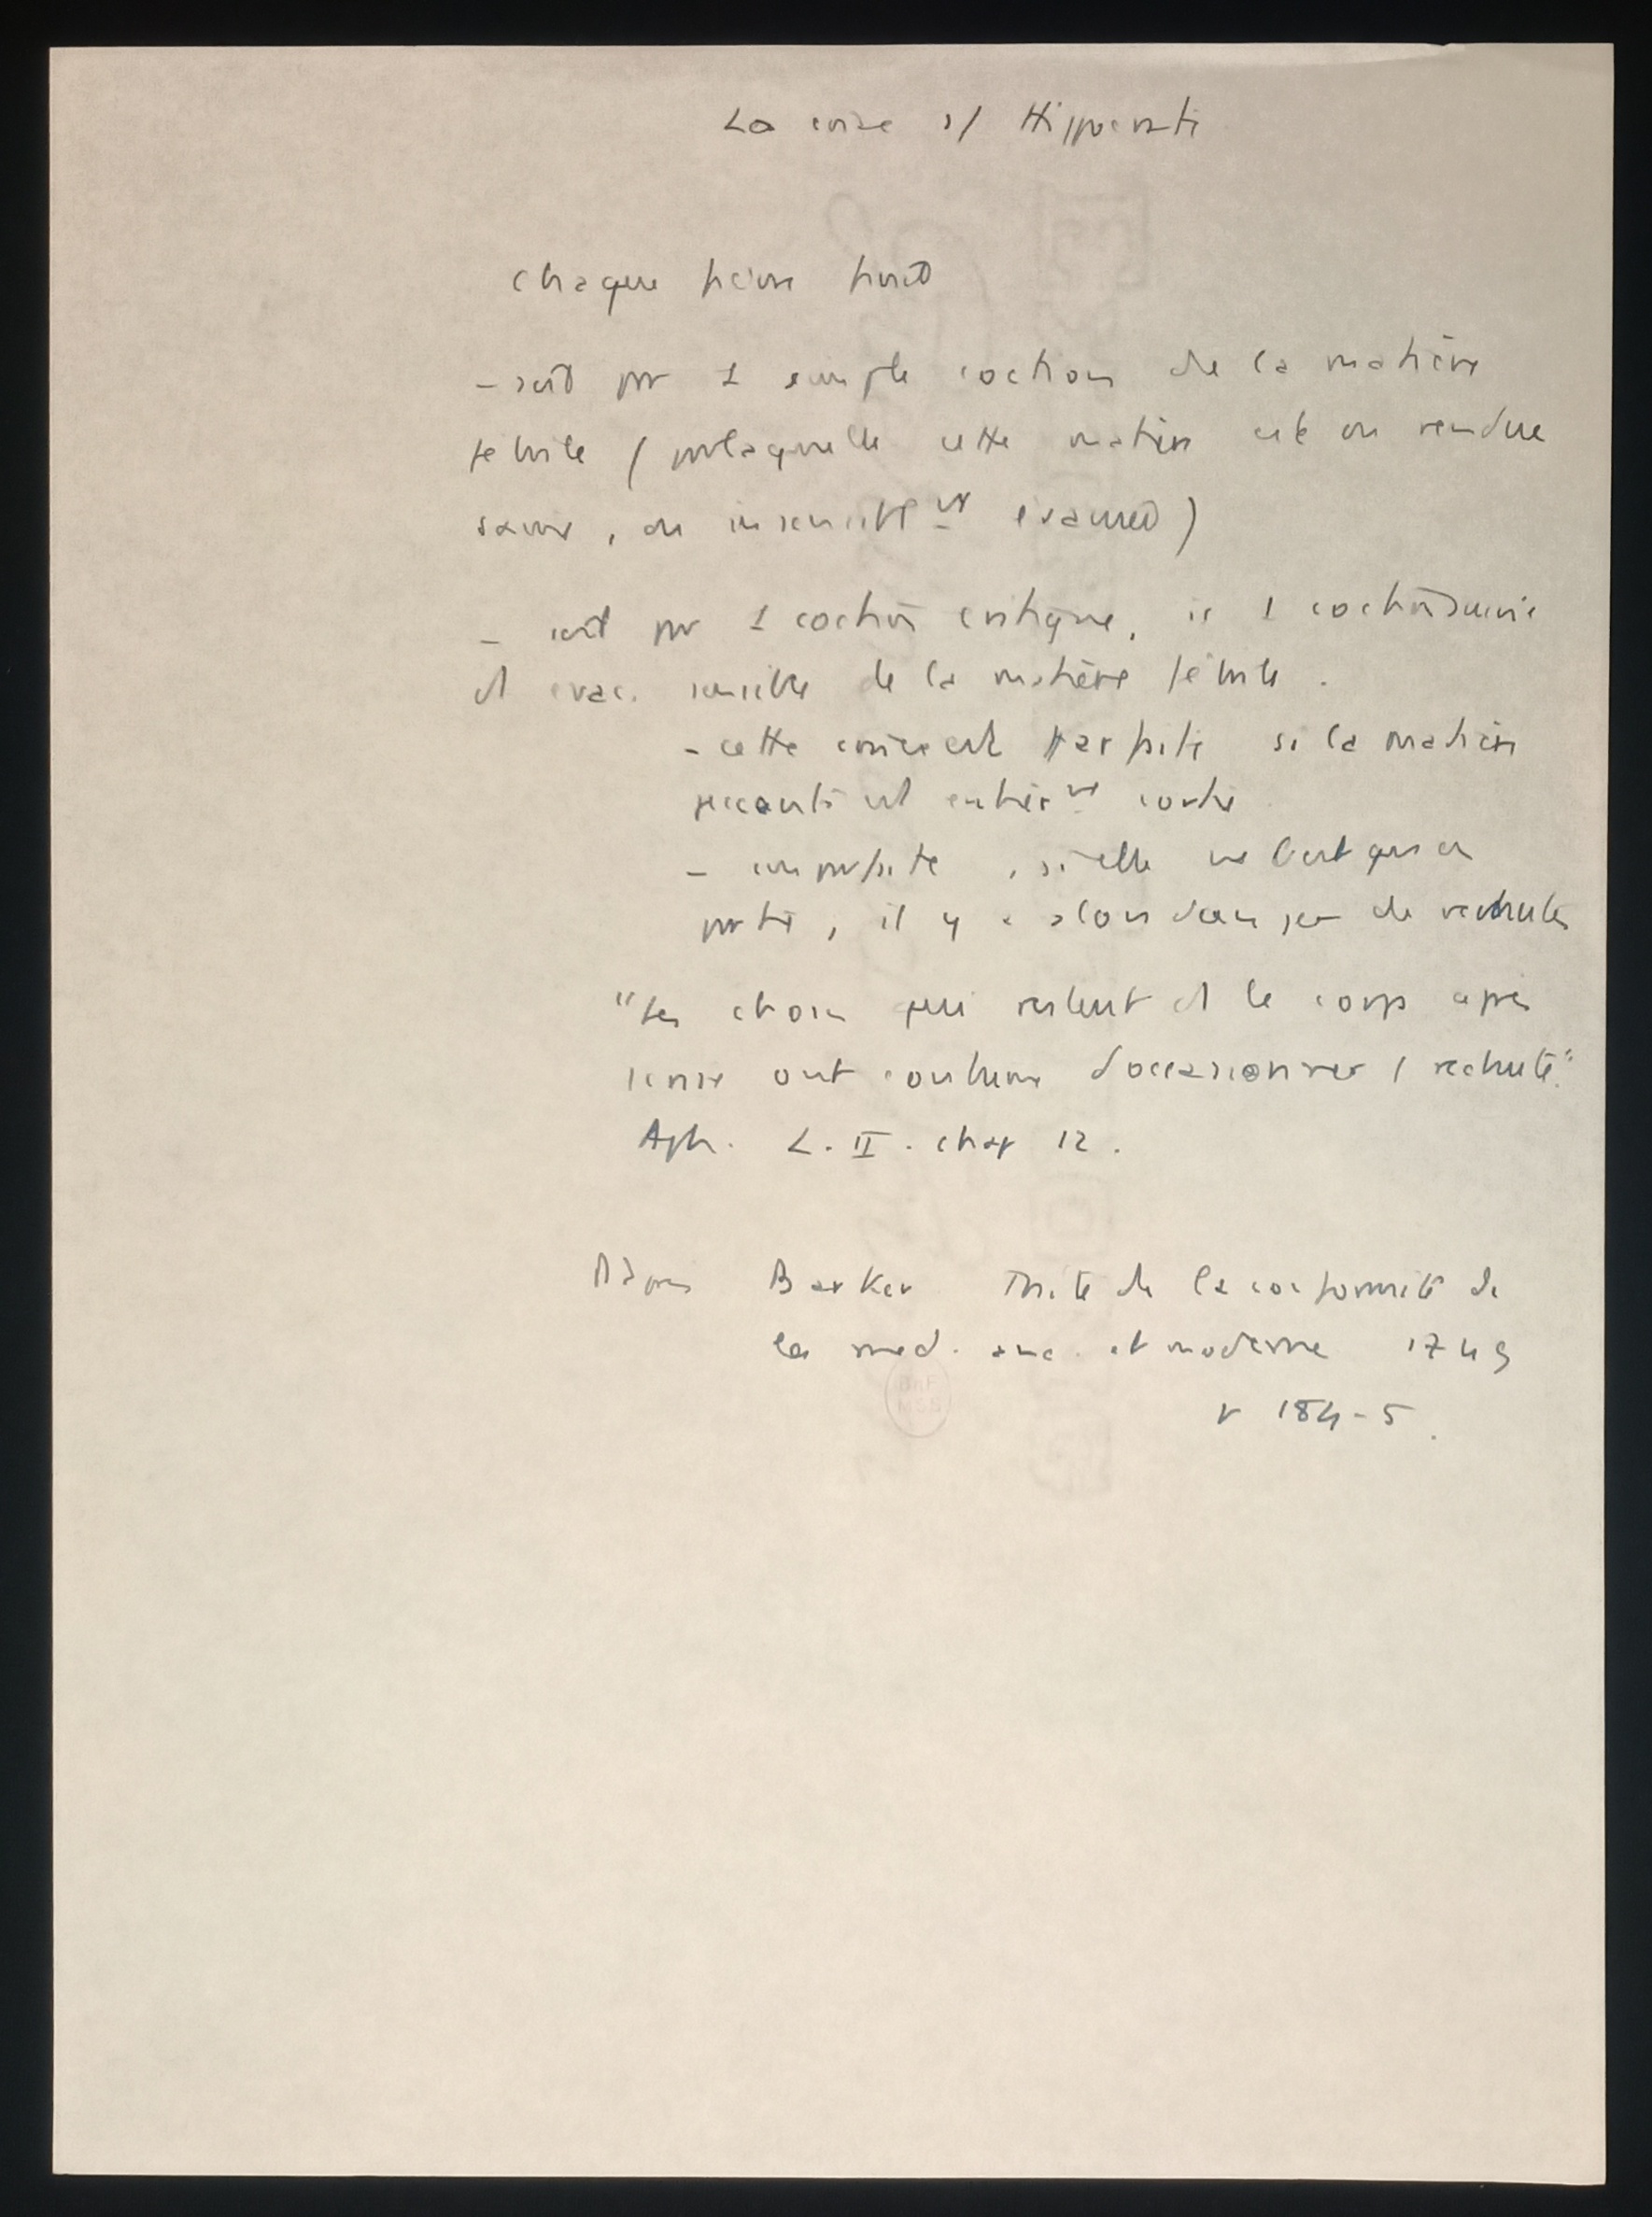 La crise s/ Hippocrate
Chaque fièvre finit
- soit par 1 simple coction de la matière
fébrile (par laquelle cette matière est ou rendue
saine, ou insensiblt évacuée)
- soit par 1 coction critique, ie 1 coction suivie
d' evac. sensible de la matière fébrile.
- cette crise est parfaite si la matière
peccante est entièrt cocte
- imparfaite, si elle ne l'est qu'en
partie, il y a alors danger de rechute
"Les choses qui restent ds le corps après
la crise ont coutume d'occasionner 1 rechute."
Aph. L. II. chap 12.
D'après Barker Traité de la conformité de
la med. anc. et moderne 1749
p 184-5.
BnF
MSS